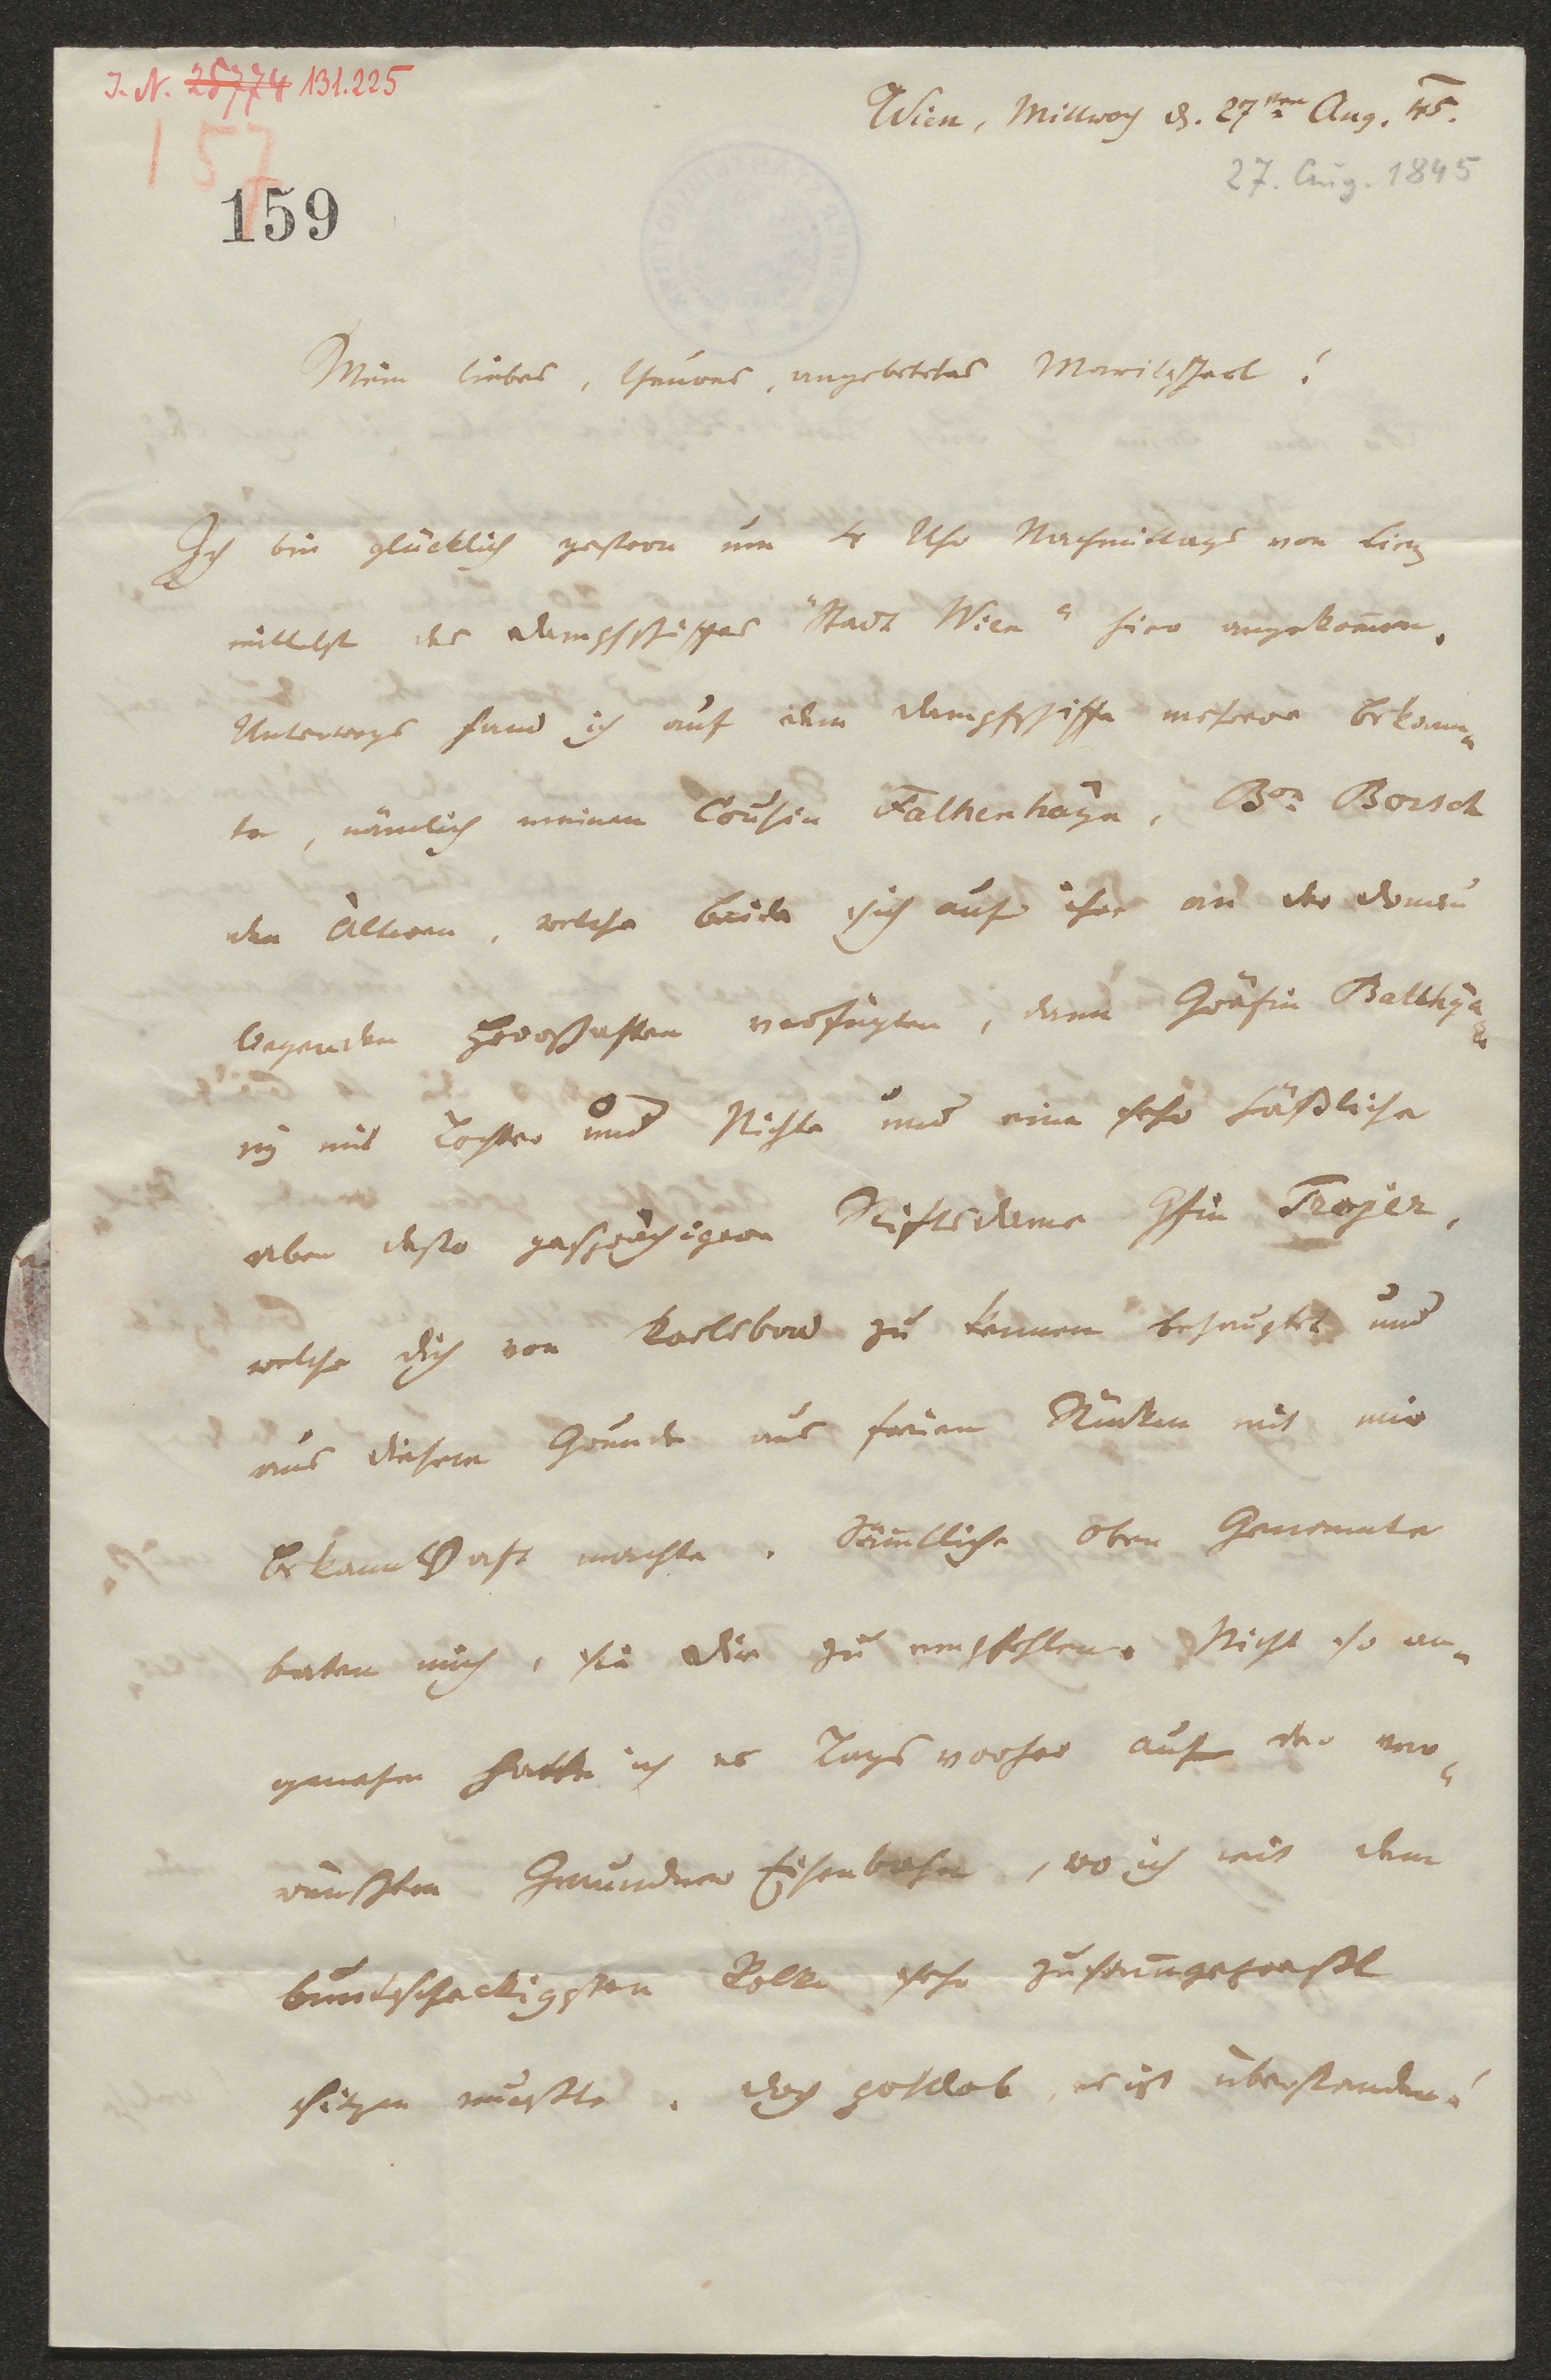 J. N. 25774 131.225
157
159
Wien, Mittwoch d. 27sten Aug. 45.
27. Aug. 1845
Mein liebes, theures, angebetetes
Ich bin glücklich gestern um 4 Uhr Nachmittags von Linz
mittelst des Dampfschiffes "Stadt Wien" hier angekom̄en.
Unterwegs fand ich auf dem Dampfschiffe mehrere Bekann-
te, nämlich meinen Cousin Falkenhayn, Bon Borsch
den Älteren, welche beide sich auf ihre an der Donau
liegenden Herrschaften verfügten, dann Gräfin Batthya-
ny mit Tochter und Nichte und eine sehr häßliche
aber desto gesprächigere Stiftsdame Gfin Troyer,
welche dich von Karlsbad zu kennen behauptet und
aus diesem Grunde aus freien Stücken mit mir
Bekanntschaft machte. Säm̄tliche oben Genannte
baten mich, sie dir zu empfehlen. Nicht so an-
genehm hatte ich es Tags vorher auf der ver-
wünschten Gmundner Eisenbahn, wo ich mit dem
buntscheckigsten Volke sehr zusam̄engepreßt
sitzen mußte. Doch gottlob, es ist überstanden!